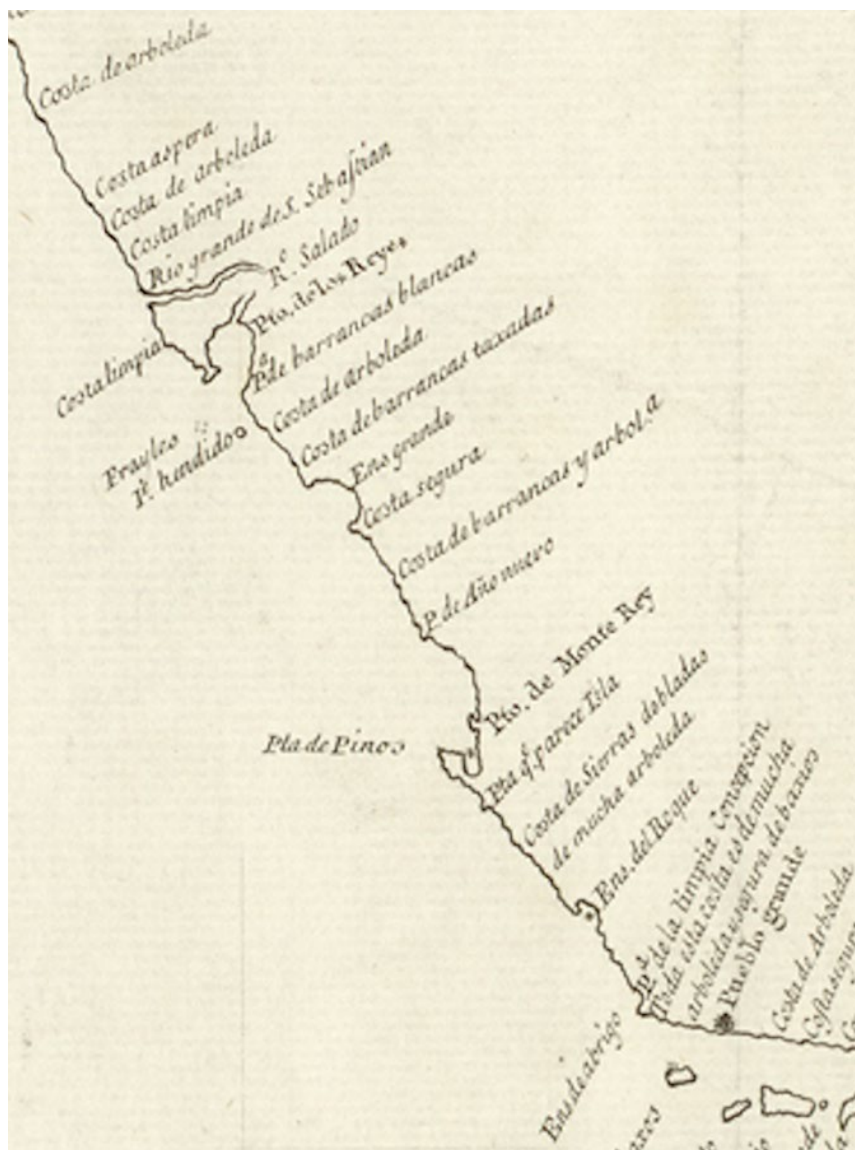 Costa de arboleda
Costa aspera
Costa de arboleda
Costa limpia
Rio grande de S. Sebastian
Rº. Salado
Pto. de los Reyes
Pª de barrancas blancas
Costa limpia
Costa de arboleda
Costa de barrancas taxadas
Frayles
Pº. hendido
Ens grande
Costa segura
Costa de barrancas y arbolª
P. de Año nuevo
Pto. de Monte Rey
Pta de Pinos
Pta qº. parece Isla
Costa de Sierras dobladas
de mucha arboleda
Ens. del Roque
Pª de la limpia Concepcion
Toda esta costa es de mucha
arboleda y segura de baxios
Pueblo grande
Costa de Arboleda
Ens de abrigo